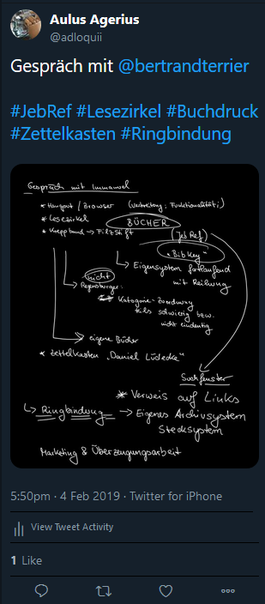 Aulus Agerius
@adloquii
Gespräch mit @bertrandterrier
#JebRef #Lesezirkel #Buchdruck
#Zettelkasten #Ringbindung
Gespräch mit Immanuel
* Hangout / Browser (Verbreitung: Funktionalität)
* Lesezirkel BÜCHER
* Knappband → Filzstift (JabRef)
"BibKey"
↳ Eigensystem fortlaufend
mit Reihung
nicht
Regensburger:
Kategorie-Zuordnung
teils schwierig bzw.
nicht eindeutig
→ eigene Bücher
* Zettelkasten "Daniel Lüdecke"
Suchfenster
* Verweis auf Links
↳ Ringbindung → Eigenes Archivsystem
Stecksystem
Marketing & Überzeugungsarbeit
5:50pm · 4 Feb 2019 · Twitter for iPhone
View Tweet Activity
1 Like